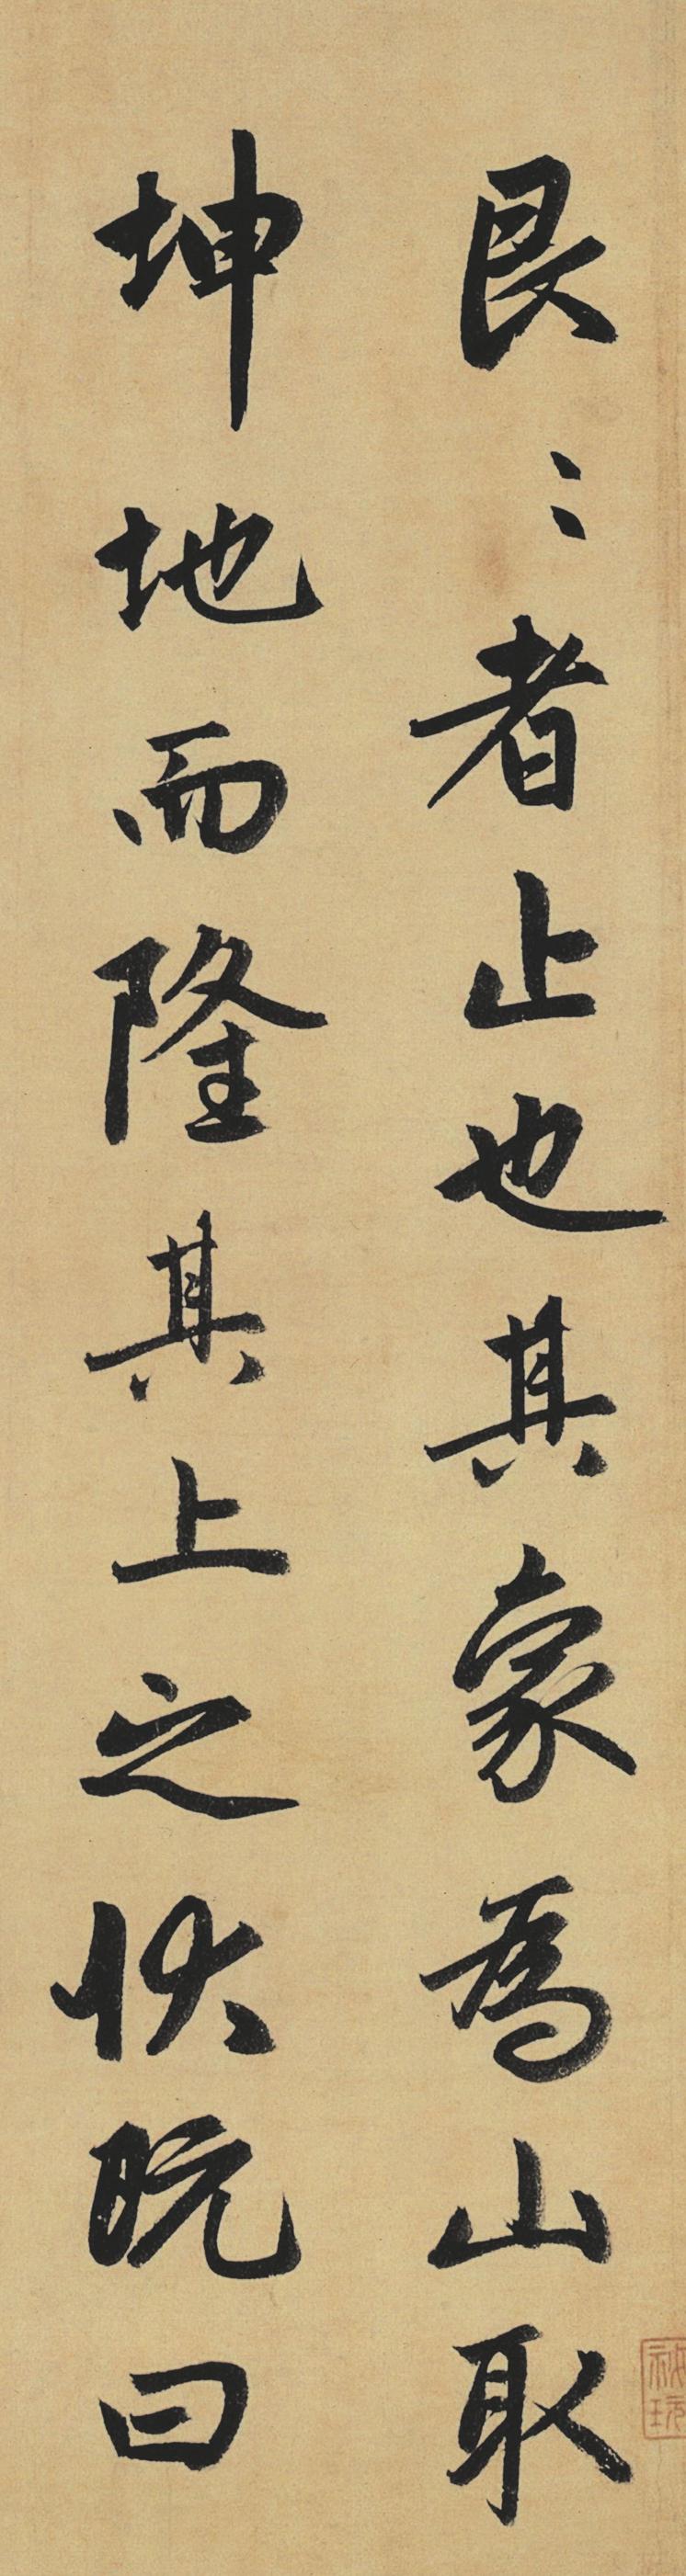 艮〻者止也其象為山取
坤地而隆其上之狀既曰